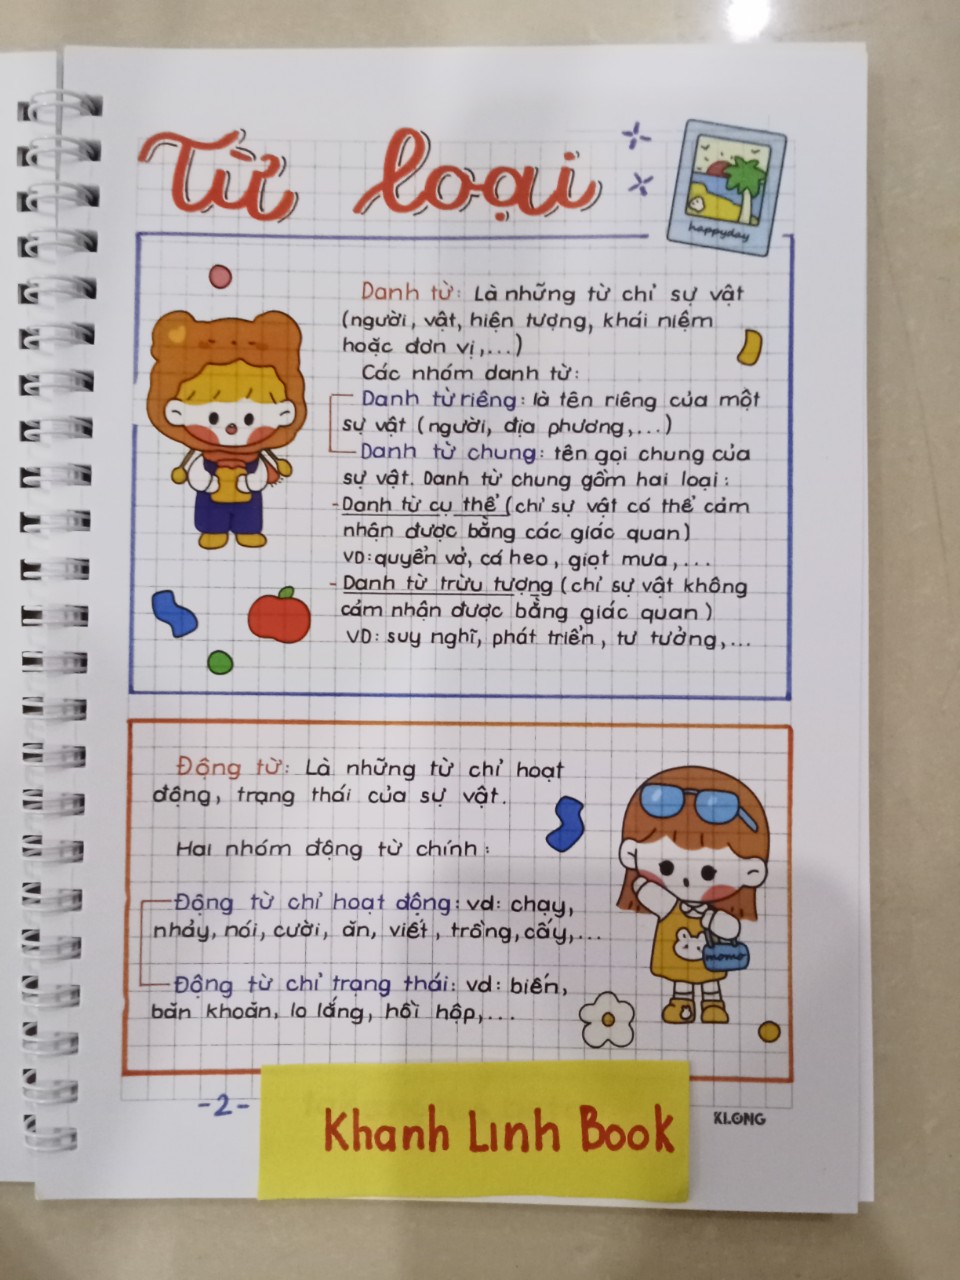 Từ loại
happyday
Danh từ: Là những từ chỉ sự vật
(người, vật, hiện tượng, khái niệm
hoặc đơn vị,...)
Các nhóm danh từ:
Danh từ riêng: là tên riêng của một
sự vật (người, địa phương,...)
Danh từ chung: tên gọi chung của
sự vật. Danh từ chung gồm hai loại:
- Danh từ cụ thể (chỉ sự vật có thể cảm
nhận được bằng các giác quan)
VD: quyển vở, cá heo, giọt mưa,...
- Danh từ trừu tượng (chỉ sự vật không
cảm nhận được bằng giác quan)
VD: suy nghĩ, phát triển, tư tưởng,...
Động từ: Là những từ chỉ hoạt
động, trạng thái của sự vật.
Hai nhóm động từ chính:
Động từ chỉ hoạt động: vd: chạy,
nhảy, nói, cười, ăn, viết, trồng, cấy,...
momo
Động từ chỉ trạng thái: vd: biến,
băn khoăn, lo lắng, hồi hộp,...
-2-
KLONG
Khanh Linh Book